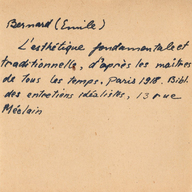 Bernard (Emile)
L'esthétique fondamentale et
traditionnelle, d'après les maîtres
de tous les temps. Paris 1918. Bibl.
des entretiens idéalistes, 13 rue
Méclain